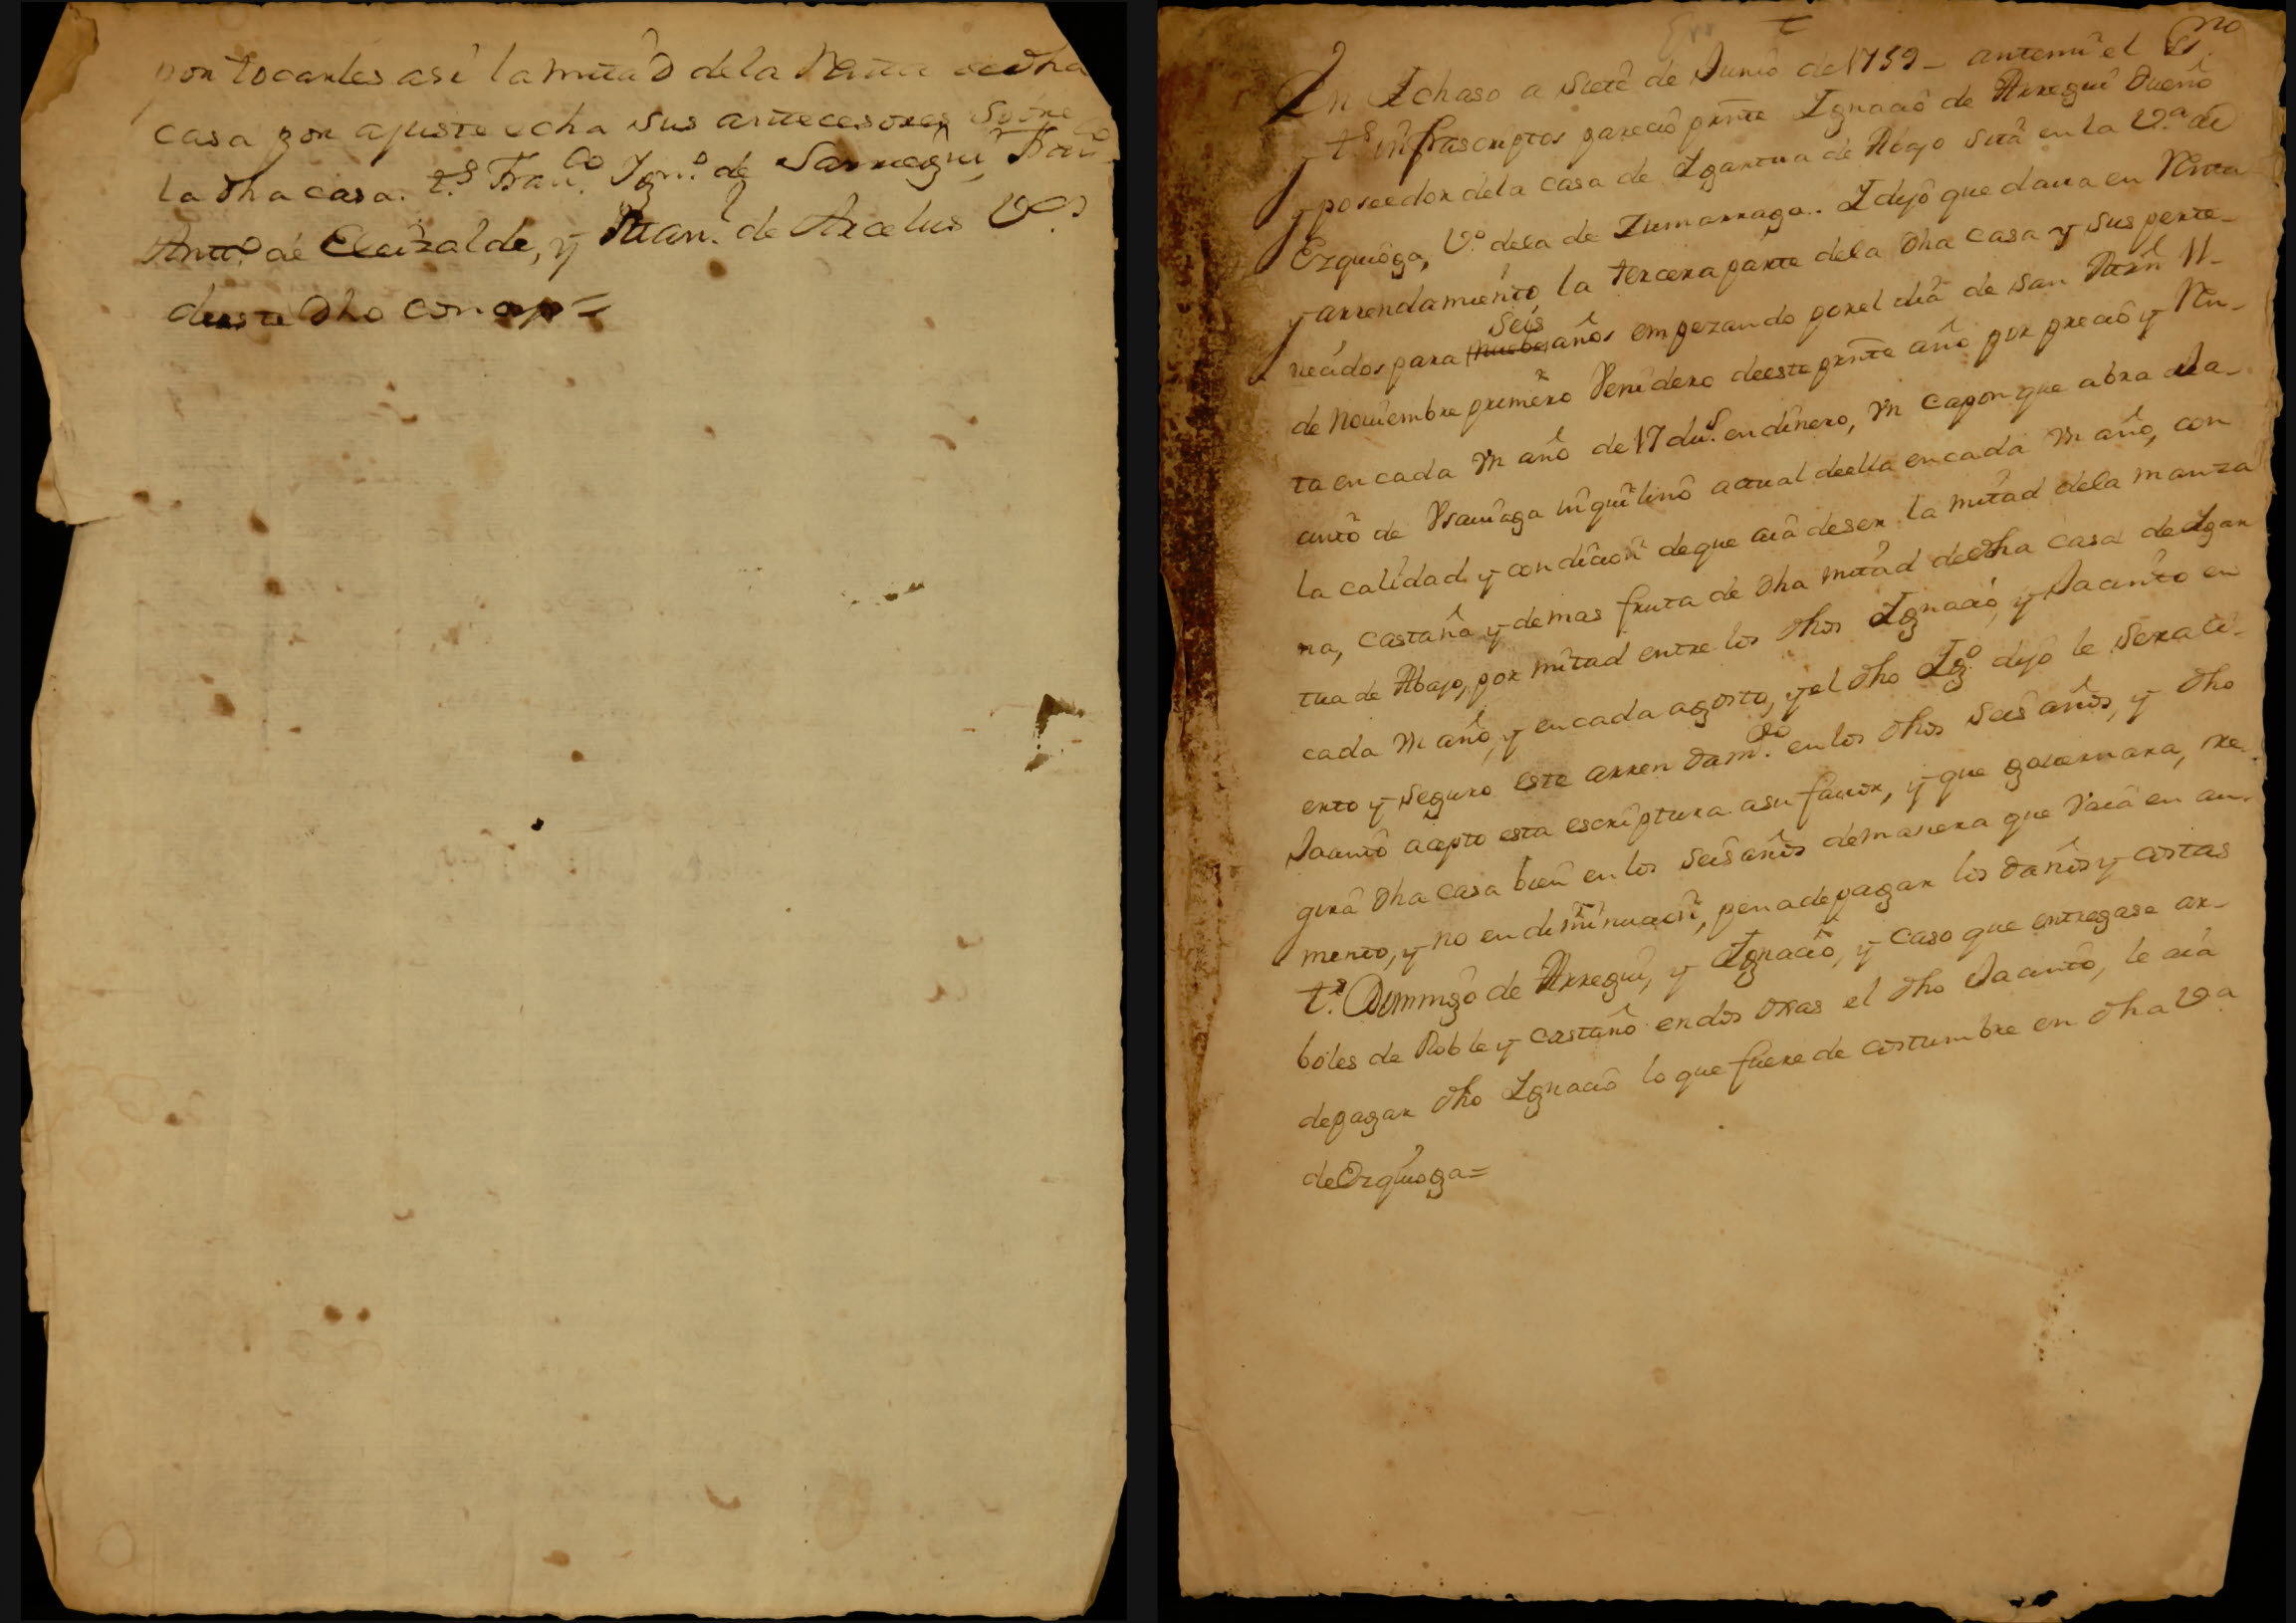 por tocarles asi la mitad de la Renta de dha
casa por ajuste echa sus antecesores sobre
la dha casa. t.s Fran.co Ign.o de Sarregui, Fran.co
Ant.o de Eleizalde, y Juan. de Arcelus V.s
deeste dho conzep=
En Ichaso a siete de Junio de 1759_ antemi el Ss.no
y t.s infrascriptos pareció prnte Ignacio de Arregui dueño
y poseedor dela casa de Igartua de Abajo sita en la V.a de
Ezquioga, V.o dela de Zumarraga.. I dijo que daua en Renta
y arrendamiento la tercera parte dela dha casa y sus perte_
seis
necidos para nuebe años empezando por el dia de san Mrn 11_
de Nouiembre primero Venidero deeste prnte año por precio y Ren_
ta en cada Vn año de 17 du.s en dinero, Vn capon que abra a Ja_
cinto de Vsauiaga inquilino actual deella en cada Vn año, con
la calidad y condicion de que aia de ser la mitad dela manza
na, castaña y demas fruta de dha mitad de dha casa de Igar
tua de Abajo, por mitad entre los dhos Ignacio, y Jacinto en
cada Vn año, y en cada agosto, y el dho Ig.o dijo le sera ci_
erto y seguro este arrendam.to en los dhos seis años, y dho
Jacinto acepto esta escriptura a su fauor, y que gouernara, re_
gira dha casa bien en los seis años de manera que vaia en au_
mento, y no en diminucion, pena de pagar los daños y costas
t.s Domingo de Arregui, y Ignacio, y caso que entregase ar_
boles de Roble y castaño en dos oxas el dho Jacinto, le aia
de pagar dho Ignacio lo que fuere de costumbre en dha V.a
de Ezquioga=